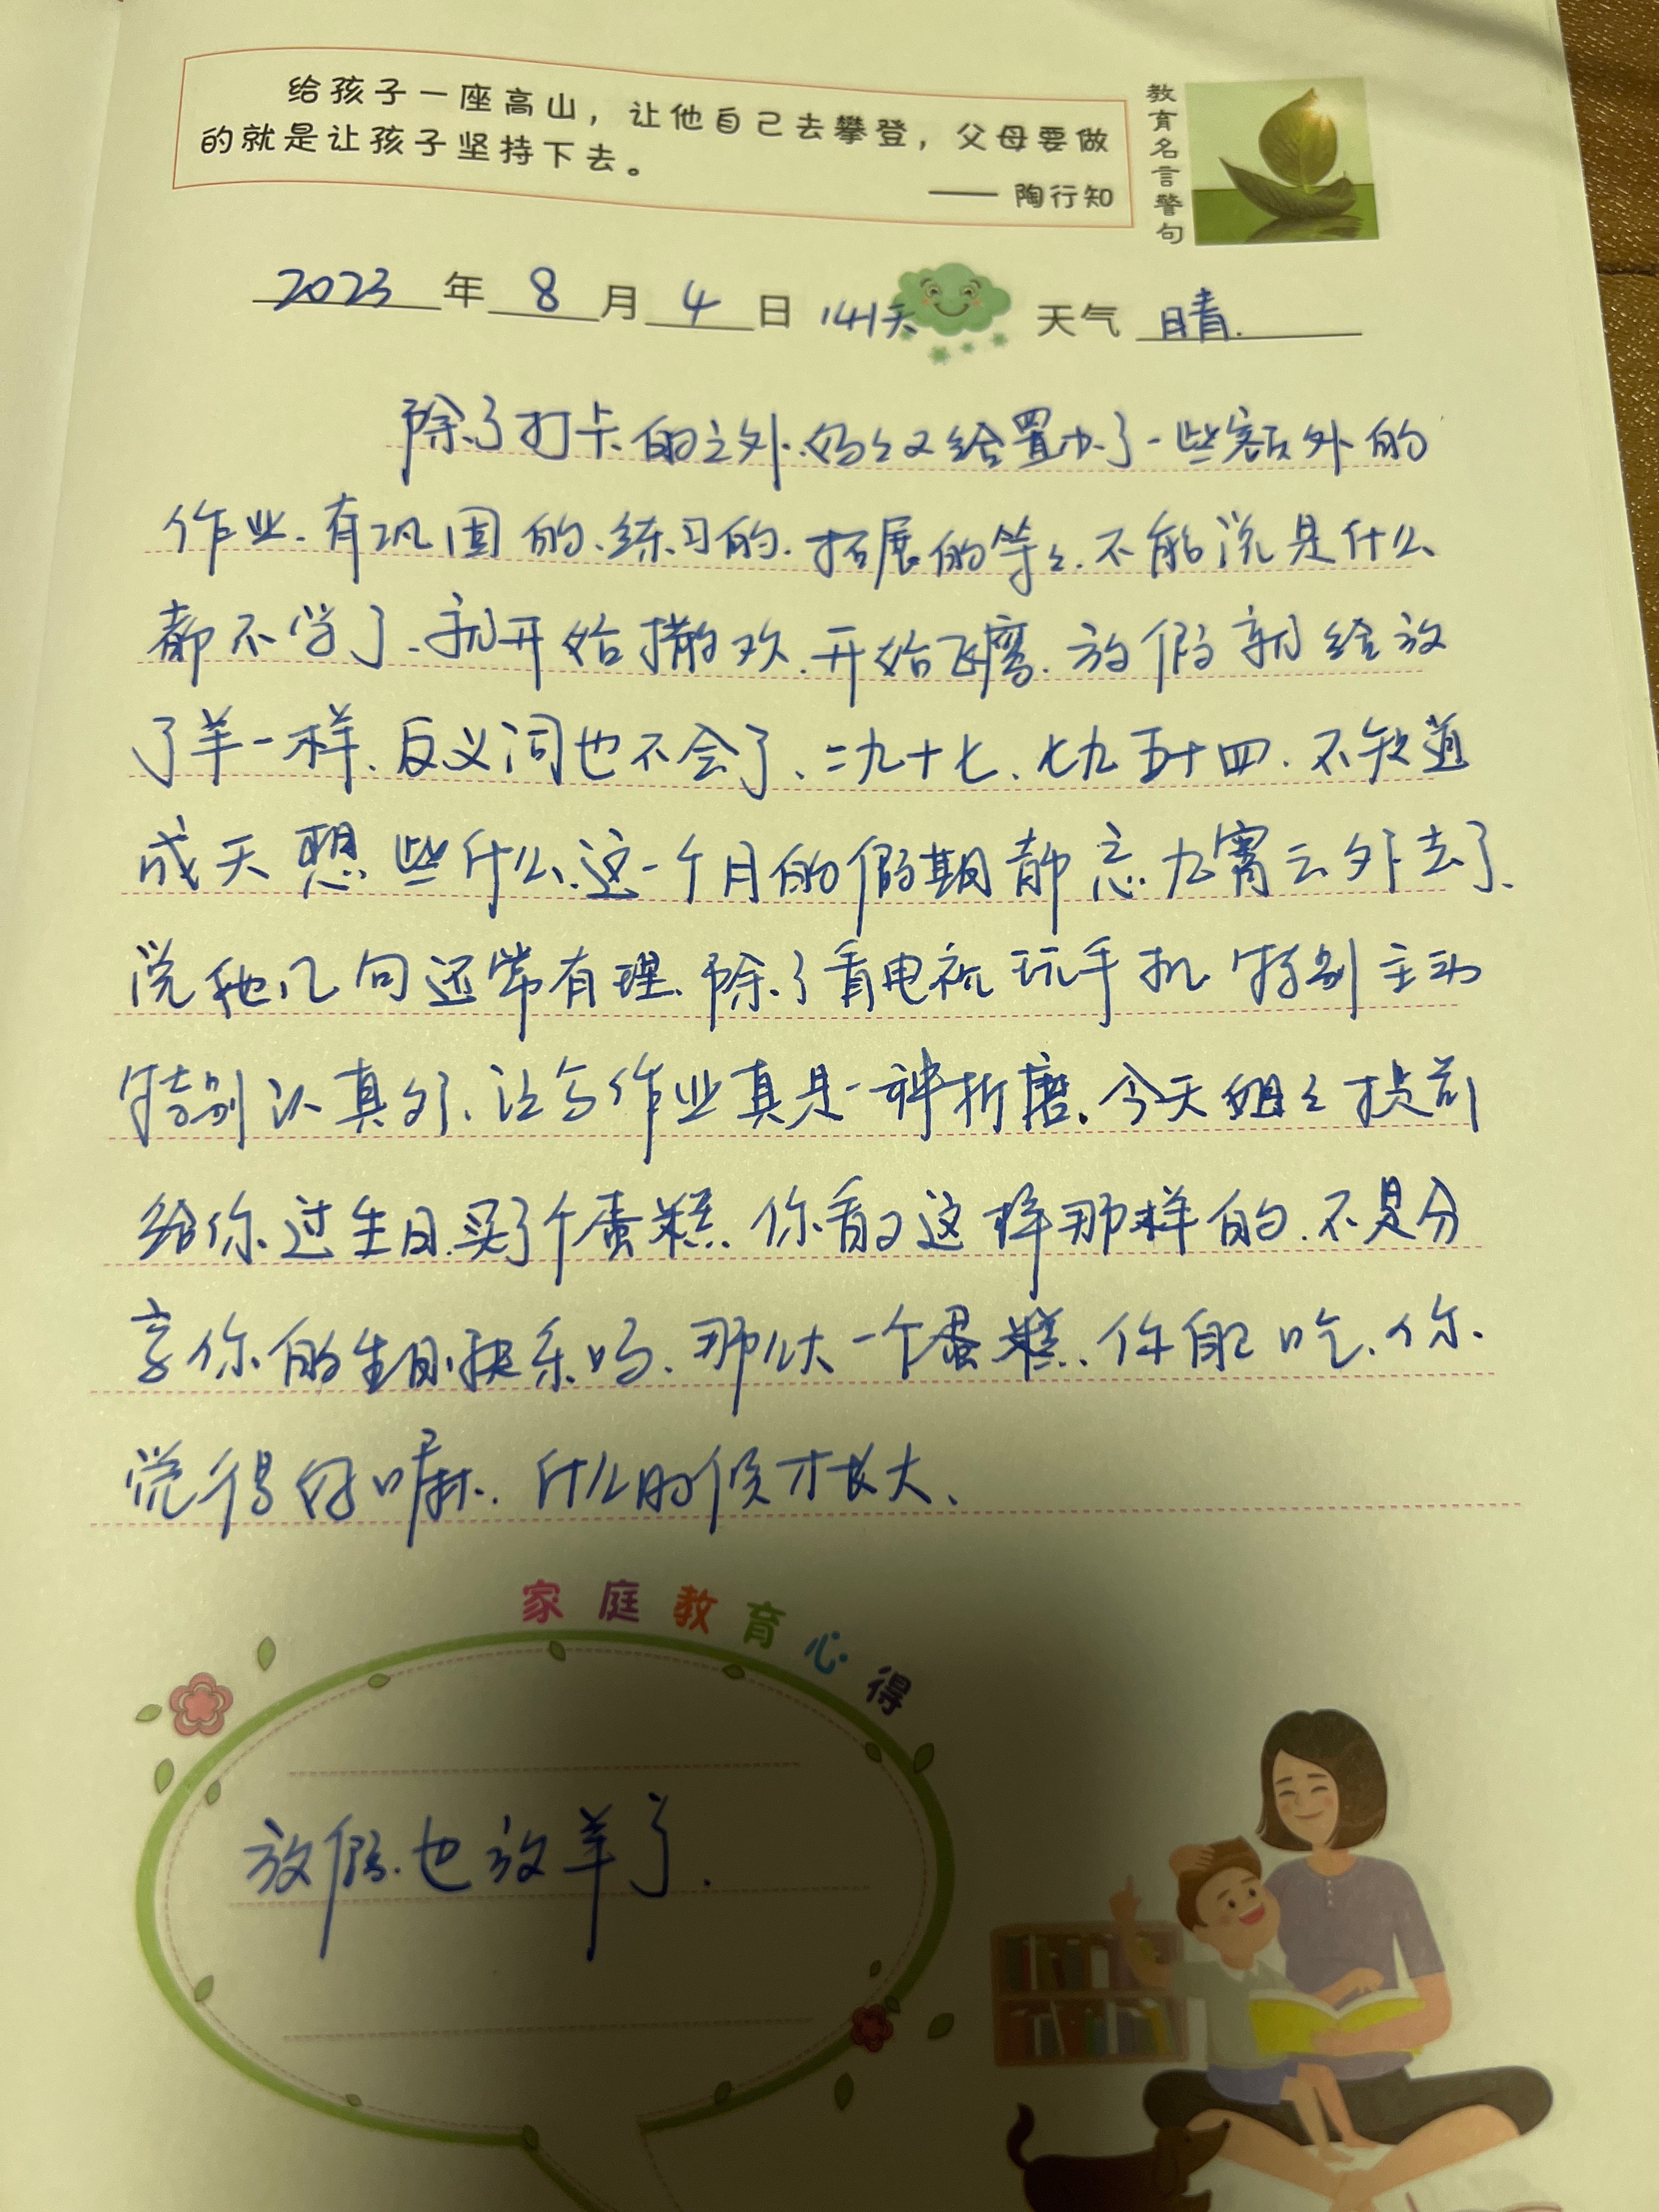 给孩子一座高山，让他自己去攀登，父母要做
的就是让孩子坚持下去。
—— 陶行知
教育名言警句
2023年8月4日 141天 天气 晴.
除了打卡的之外.妈々又给置办了一些额外的
作业.有巩固的、练习的.拓展的等々.不能说是什么
都不学了、就开始撒欢.开始飞鹰.放假就给放
了羊一样.反义词也不会了、二九十七、七九五十四.不知道
成天想些什么.这一个月的假期都忘九霄云外去了、
说他几句还常有理、除了看电视玩手机特别主动
特别认真外、让写作业真是一种折磨.今天姐々提前
给你过生日.买了个蛋糕.你看了这样那样的.不是分
享你的生日快乐吗、那么大一个蛋糕.你自己吃.你
觉得好嘛.什么时候才长大、
家庭教育心得
放假.也放羊了.